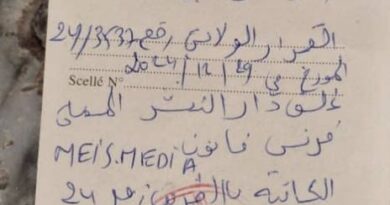 القرار الولائي رقم 24/3537
المؤرخ في 29/12/2024
Scellé N°
غلق دار النشر المسمى
فرنس فانون
MEIS.MEDIA
الكائنة بـ 24